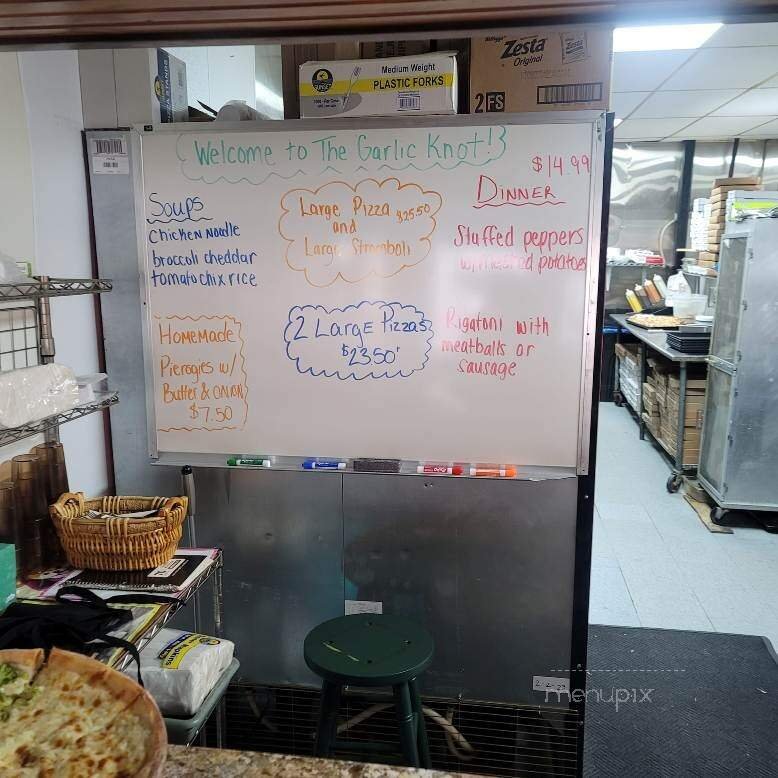 Zesta
Original
Medium Weight
PLASTIC FORKS
2FS
Welcome to The Garlic Knot!
$14.99
DINNER
Soups
Chicken Noodle
broccoli cheddar
tomato chix rice
Large Pizza $25.50
and
Large Stromboli
Stuffed peppers
w/ mashed potatoes
HomeMade
Pierogies w/
Butter & ONION
$7.50
2 Large Pizzas
$23.50
Rigatoni with
meatballs or
sausage
menupix